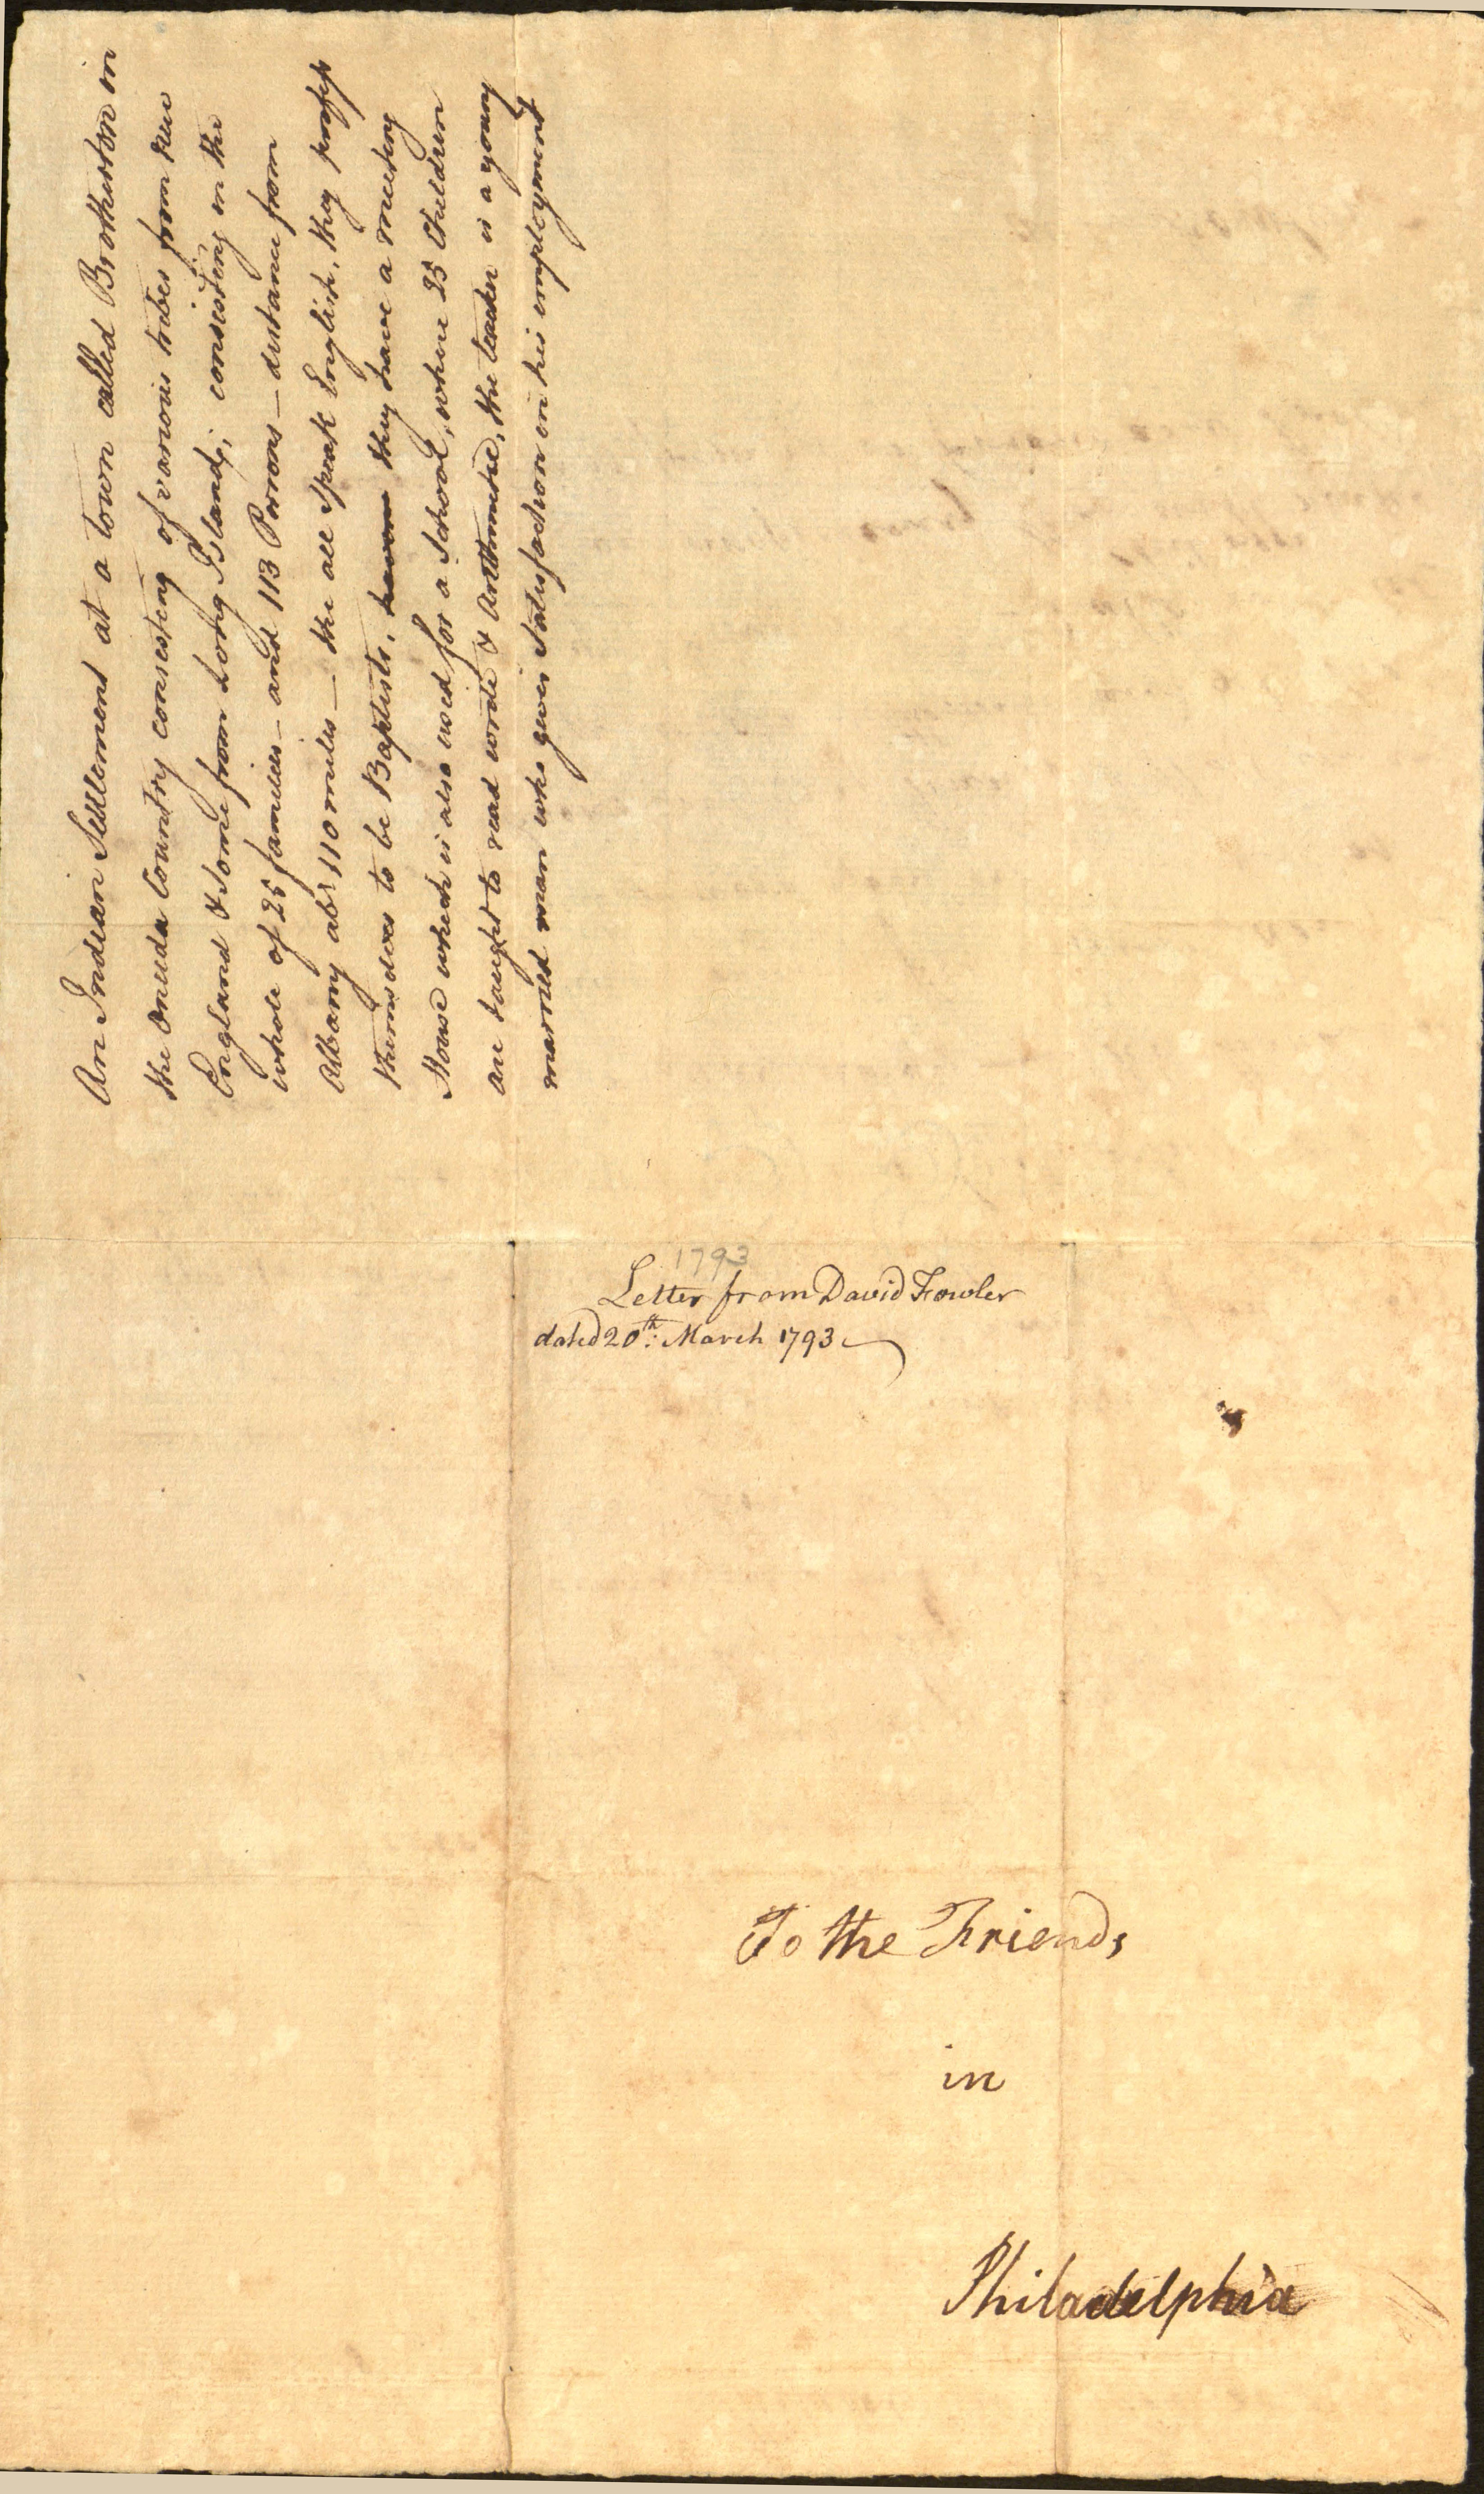 An Indian Settlement at a town called Brotherton in
the Oneida Country consisting of various tribes from New
England & Some from Long Island; consisting in the
whole of 25 families - and 113 Persons - distance from
Albany abt 110 miles - the all Speak English, they profess
themselves to be Baptists, they have a meeting
House which is also used for a School, where 25 Children
are taught to read write & Arithmetic, the teacher is a young
married man who gives Satisfaction in his employment
1793
Letter from David Fowler
dated 20th: March 1793
To the Friends
in
Philadelphia